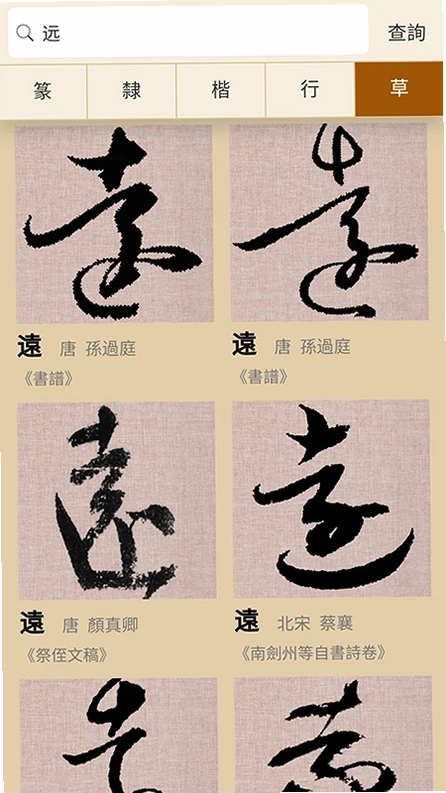 远 查詢
篆 隸 楷 行 草
遠 遠
遠 唐 孫過庭 遠 唐 孫過庭
《書譜》 《書譜》
遠 遠
遠 唐 顏真卿 遠 北宋 蔡襄
《祭侄文稿》 《南劍州等自書詩卷》